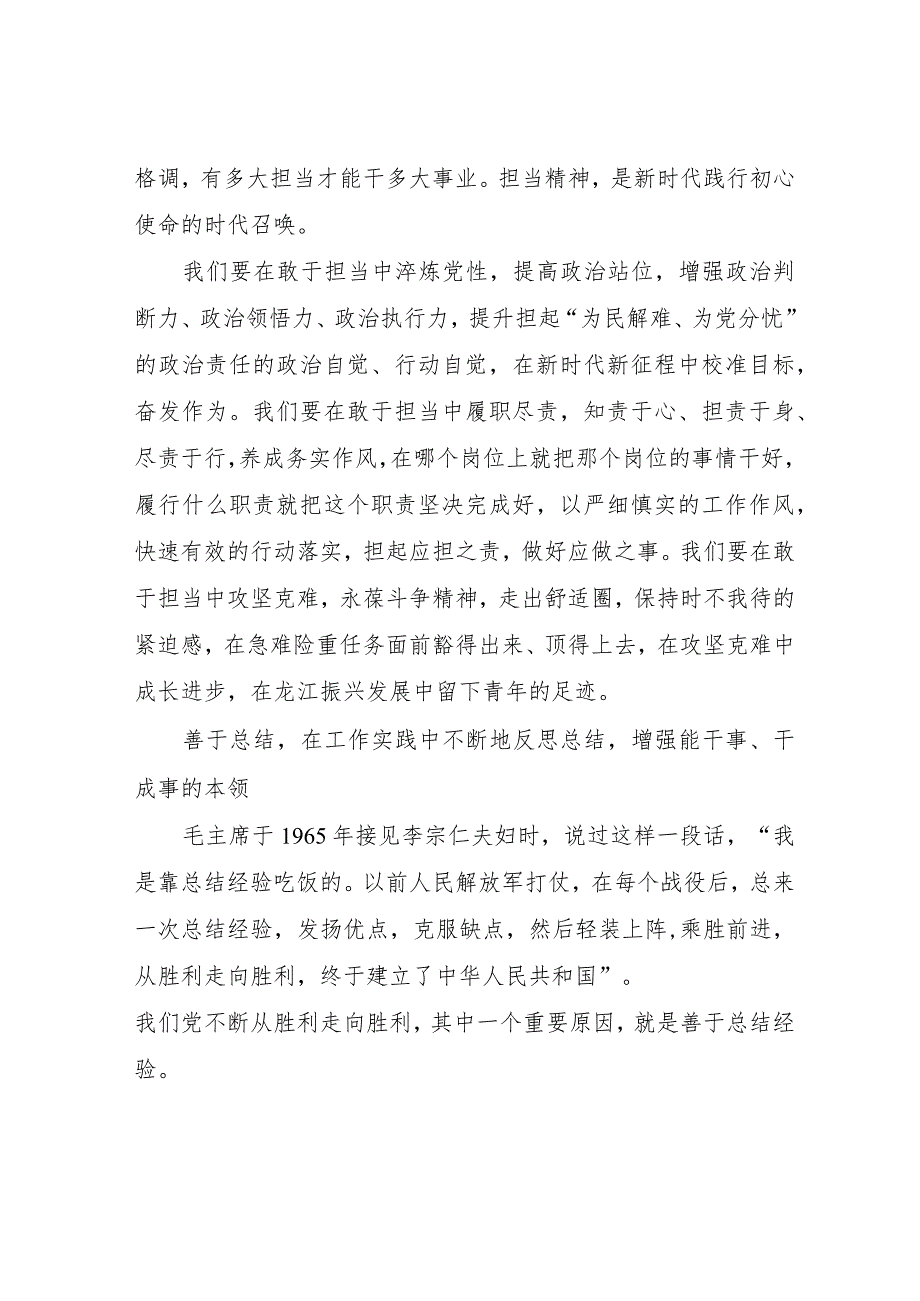 格调，有多大担当才能干多大事业。担当精神，是新时代践行初心
使命的时代召唤。
我们要在敢于担当中淬炼党性，提高政治站位，增强政治判
断力、政治领悟力、政治执行力，提升担起“为民解难、为党分忧”
的政治责任的政治自觉、行动自觉，在新时代新征程中校准目标，
奋发作为。我们要在敢于担当中履职尽责，知责于心、担责于身、
尽责于行，养成务实作风，在哪个岗位上就把那个岗位的事情干好，
履行什么职责就把这个职责坚决完成好，以严细慎实的工作作风，
快速有效的行动落实，担起应担之责，做好应做之事。我们要在敢
于担当中攻坚克难，永葆斗争精神，走出舒适圈，保持时不我待的
紧迫感，在急难险重任务面前豁得出来、顶得上去，在攻坚克难中
成长进步，在龙江振兴发展中留下青年的足迹。
善于总结，在工作实践中不断地反思总结，增强能干事、干
成事的本领
毛主席于1965年接见李宗仁夫妇时，说过这样一段话，“我
是靠总结经验吃饭的。以前人民解放军打仗，在每个战役后，总来
一次总结经验，发扬优点，克服缺点，然后轻装上阵,乘胜前进，
从胜利走向胜利，终于建立了中华人民共和国”。
我们党不断从胜利走向胜利，其中一个重要原因，就是善于总结经
验。